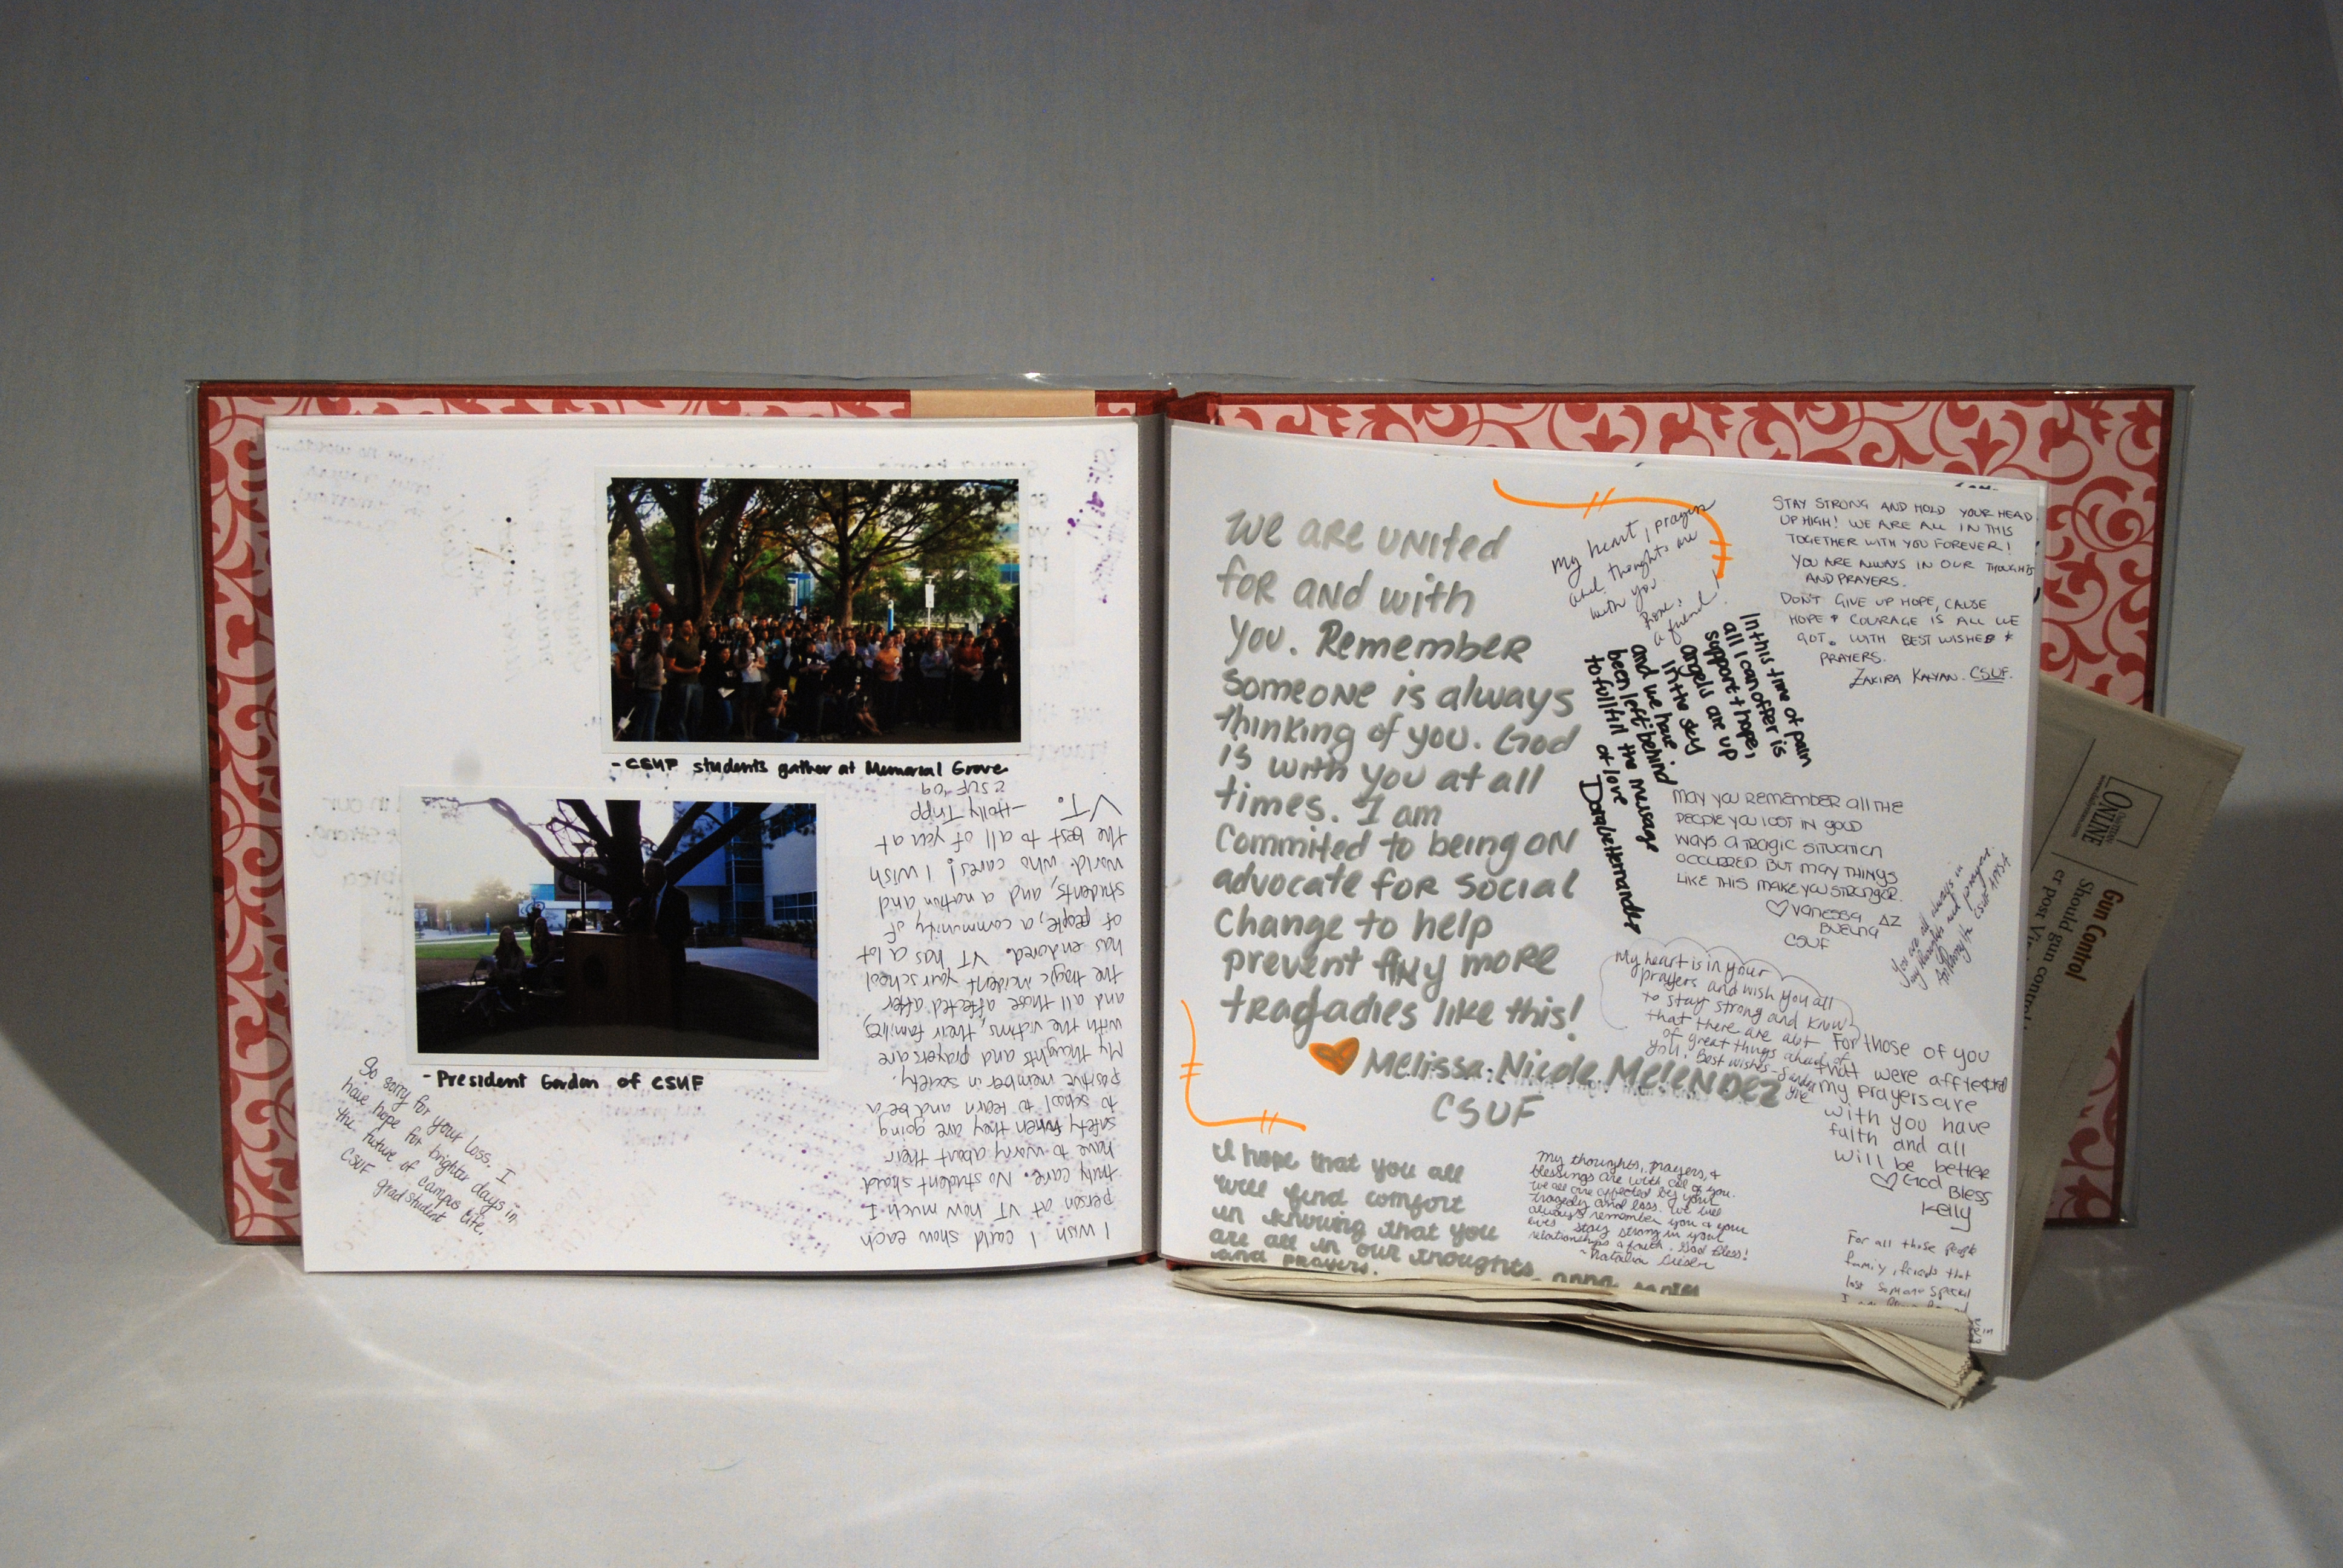 - CSUF students gather at Memorial Grove
- President Gordon of CSUF
So sorry for your loss. I
have hope for brighter days in
the future of campus life.
CSUF grad student
I wish I could show each
person at VT how much I
truly care. No student should
have to worry about their
safety when they are going
to school to learn and be a
positive member in society.
My thoughts and prayers are
with the victims, their families,
and all those affected after
the tragic incident your school
has endured. VT has a lot
of people, a community of
students, and a nation and
world who cares! I wish
the best to all of you at
VT.
-Holly Tripp
CSUF '09
We are united
for and with
you. Remember
someone is always
thinking of you. God
is with you at all
times. I am
Commited to being an
advocate for social
Change to help
prevent any more
tragadies like this!
Melissa Nicole Melendez
CSUF
I hope that you all
will find comfort
in knowing that you
are all in our thoughts
and prayers.
My heart, prayers
and thoughts are
with you
From:
a friend!
In this time of pain
all I can offer is
support + hope,
angels are up
in the sky
and we have
been left behind
to fullfill the message
of love
Hernandez
STAY STRONG AND HOLD YOUR HEAD
UP HIGH! WE ARE ALL IN THIS
TOGETHER WITH YOU FOREVER!
YOU ARE ALWAYS IN OUR THOUGHTS
AND PRAYERS.
DON'T GIVE UP HOPE, CAUSE
HOPE & COURAGE IS ALL WE
GOT. WITH BEST WISHES &
PRAYERS.
ZAKIRA KALYAN. CSUF.
May you remember all the
people you lost in good
ways. A tragic situation
occurred but may things
like this make you stronger.
♡ Vanessa ΔZ
Buelna
CSUF
You are all always in
my thoughts and prayers.
My heart is in your
prayers and wish you all
to stay strong and know
that there are alot
of great things ahead of
you! Best wishes - Sandra
For those of you
that were affected
my prayers are
with you have
faith and all
will be better
♡ God Bless
Kelly
My thoughts, prayers, &
blessings are with all of you.
We all are affected by your
tragedy and loss. We will
always remember you & your
lives. Stay strong in your
relationships & faith. God Bless!
~Natalia
For all those people
family, friends that
lost someone special
ONLINE
Gun Control
Should gun control
er post Vi